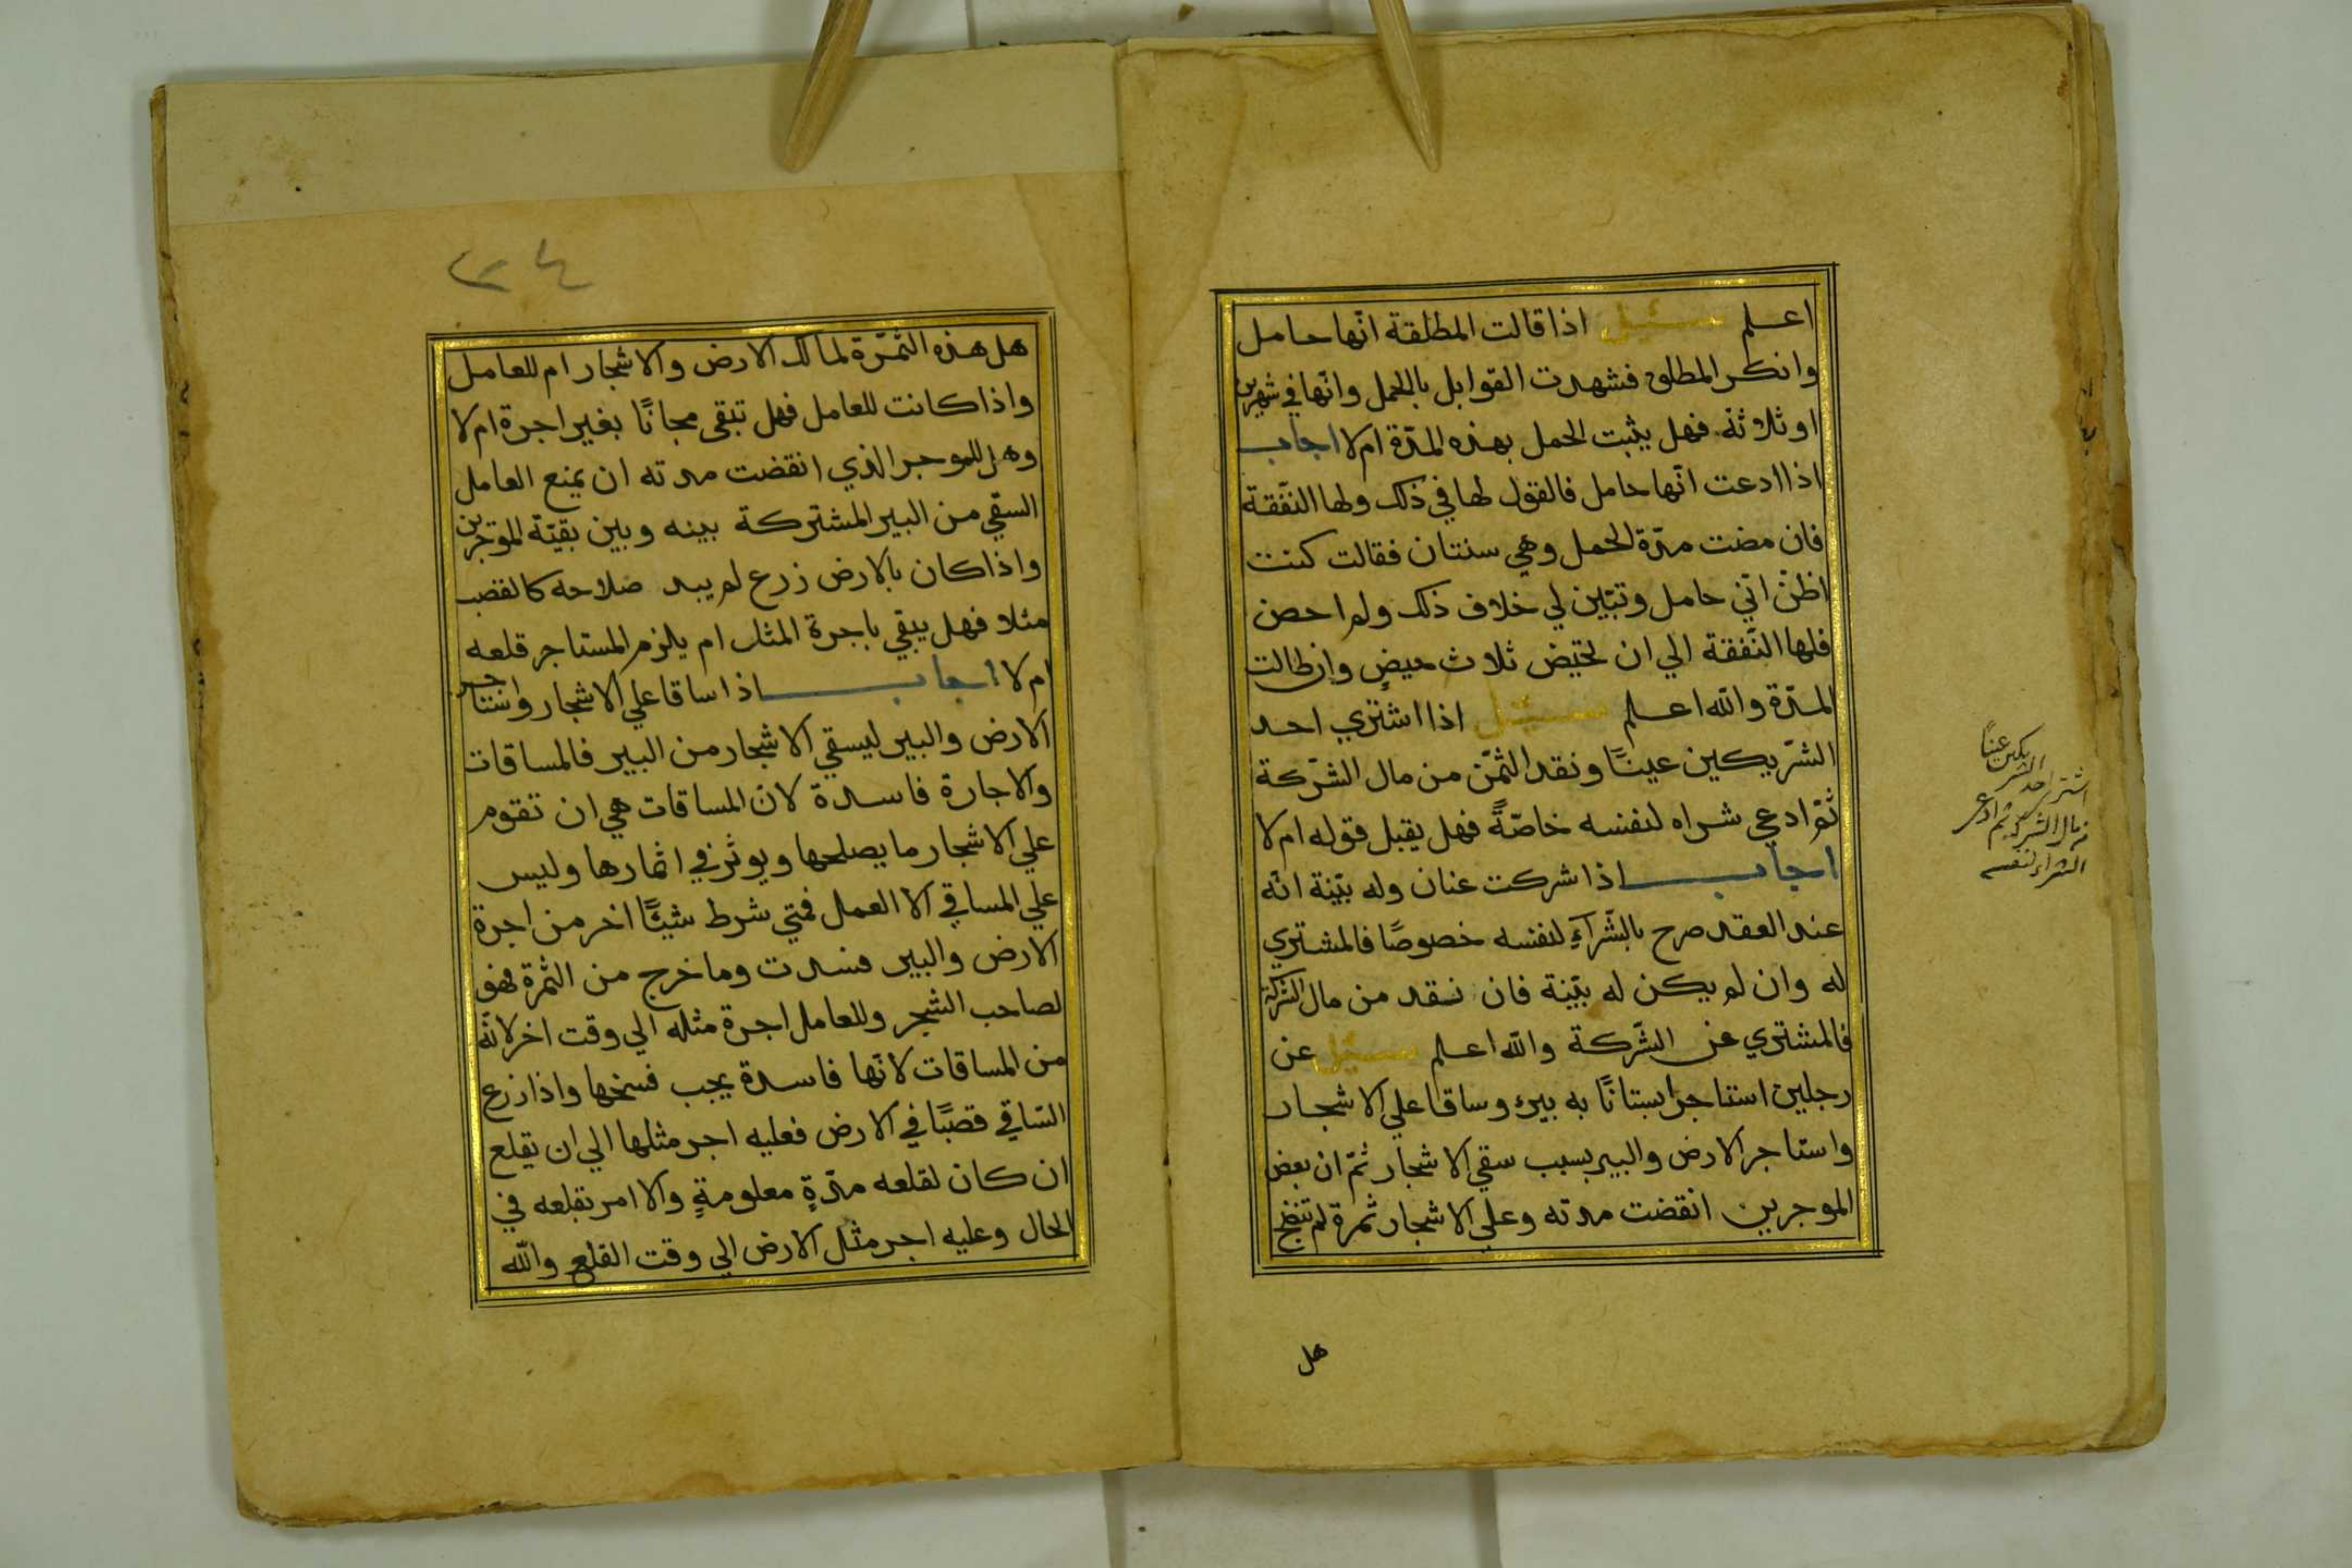 اعلم سئيل اذا قالت المطلقة انّها حامل
وانكر المطلق فشهدت القوابل بالحمل وانّها في شهرين
او ثلاثة فهل يثبت الحمل بهذه المدّة ام لا اجاب
اذا ادعت انّها حامل فالقول لها في ذلك ولها النّفقة
فان مضت مدّة الحمل وهي سنتان فقالت كنت
اظنّ انّي حامل وتبيّن لي خلاف ذلك ولم احض
فلها النّفقة الي ان تحيض ثلاث حيضٍ وان طالت
المدّة والله اعلم سئيل اذا اشتري احد
الشّريكين عينًا ونقد الثّمن من مال الشّركة
ثمّ ادعي شراه لنفسه خاصّةً فهل يقبل قوله ام لا
اجاب اذا شركت عنان وله بيّنة انّه
عند العقد صرح بالشّرآءِ لنفسه خصوصًا فالمشتري
له وان لم يكن له بيّنة فان نقد من مال الشركة
فالمشتري عن الشّركة والله اعلم سئيل عن
رجلين استاجرا بستانًا به بير وساقا علي الاشجار
واستاجر الارض والبير بسبب سقي الاشجار ثمّ ان بعض
الموجرين انقضت مدته وعلي الاشجار ثمرة لم تنضج
هل
اشترا احد الشريكين عينًا
من مال الشركة ثم ادعى
الشراء لنفسه
٢٤
هل هذه الثّمرة لمالك الارض والاشجار ام للعامل
واذا كانت للعامل فهل تبقى مجانًا بغير اجرة ام لا
وهل للموجر الذي انقضت مدته ان يمنع العامل
السّقي من البير المشتركة بينه وبين بقيّة الموجرين
واذا كان بالارض زرع لم يبد صلاحه كالقصب
مثلا فهل يبقي باجرة المثل ام يلزم المستاجر قلعه
ام لا اجاب اذا ساقا علي الاشجار واستاجر
الارض والبير ليسقي الاشجار من البير فالمساقات
والاجارة فاسدة لان المساقات هي ان تقوم
علي الاشجار ما يصلحها ويوثر في اثمارها وليس
علي المساقي الا العمل فمتي شرط شيئًا اخر من اجرة
الارض والبير فسدت وما خرج من الثمرة فهو
لصاحب الشجر وللعامل اجرة مثله الي وقت اخر لانّه
من المساقات لانّها فاسدة يجب فسخها واذا زرع
السّاقي قصبًا في الارض فعليه اجر مثلها الي ان يقلع
ان كان لقلعه مدّةٍ معلومةٍ والا امر بقلعه في
الحال وعليه اجر مثل الارض الي وقت القلع والله